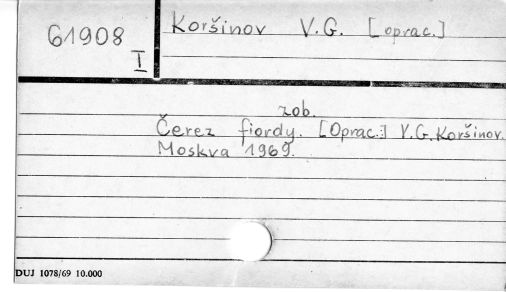 61908
I
Koršinov V.G. [oprac.]
zob.
Čerez fiordy. [Oprac.:] V.G. Koršinov.
Moskva 1969.
DUJ 1078/69 10.000